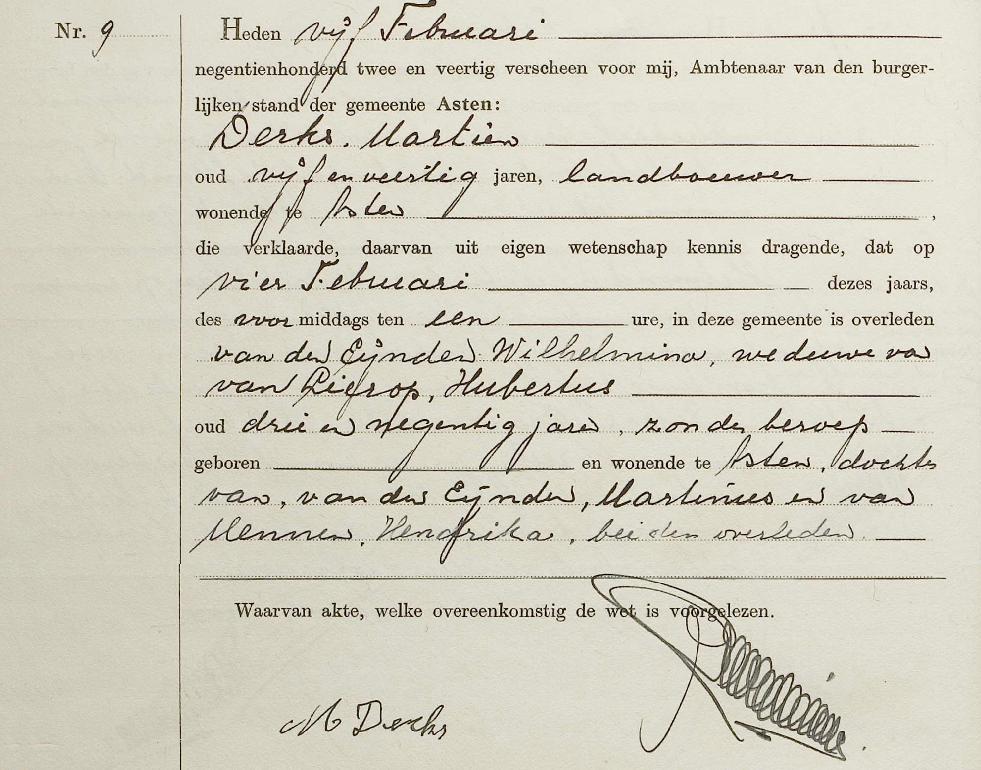 Nr. 9
Heden vijf Februari
negentienhonderd twee en veertig verscheen voor mij, Ambtenaar van den burger-
lijken stand der gemeente Asten:
Derks. Martien
oud vijf en veertig jaren, landbouwer
wonende te Asten,
die verklaarde, daarvan uit eigen wetenschap kennis dragende, dat op
vier Februari dezes jaars,
des voormiddags ten een ure, in deze gemeente is overleden
van den Eijnden Wilhelmina, weduwe van
van, Hubertus
oud drie en negentig jaren, zonder beroep
geboren en wonende te Asten, dochter
van, van den Eijnden, Martinus en van
Mennen, Hendrika, beiden overleden.
Waarvan akte, welke overeenkomstig de wet is voorgelezen.
M Derks